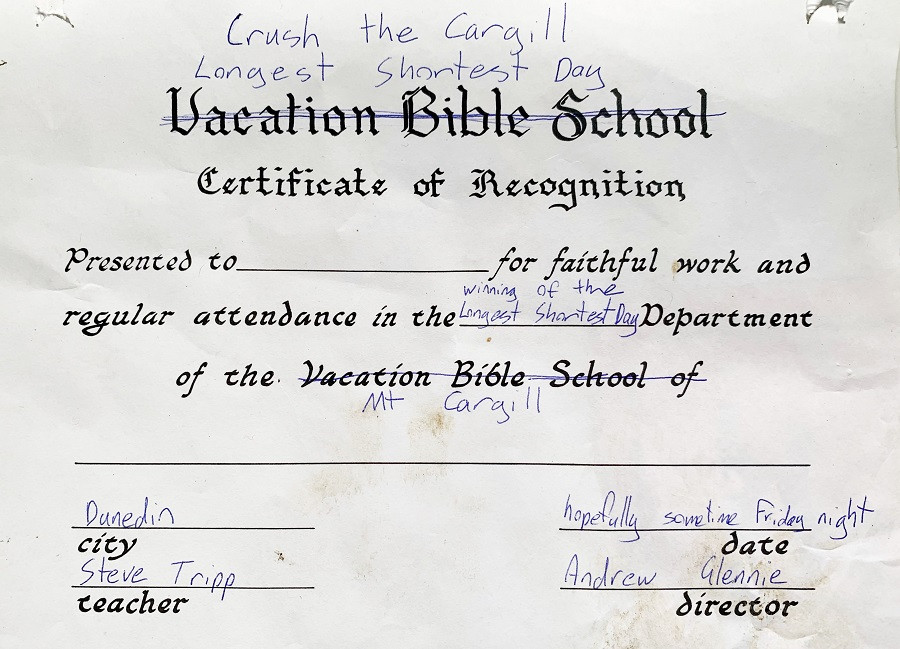 Crush the Cargill
Longest Shortest Day
Vacation Bible School
Certificate of Recognition
Presented to for faithful work and
winning of the
regular attendance in the Longest Shortest Day Department
of the Vacation Bible School of
Mt Cargill
Dunedin hopefully sometime Friday night
city date
Steve Tripp Andrew Glennie
teacher director